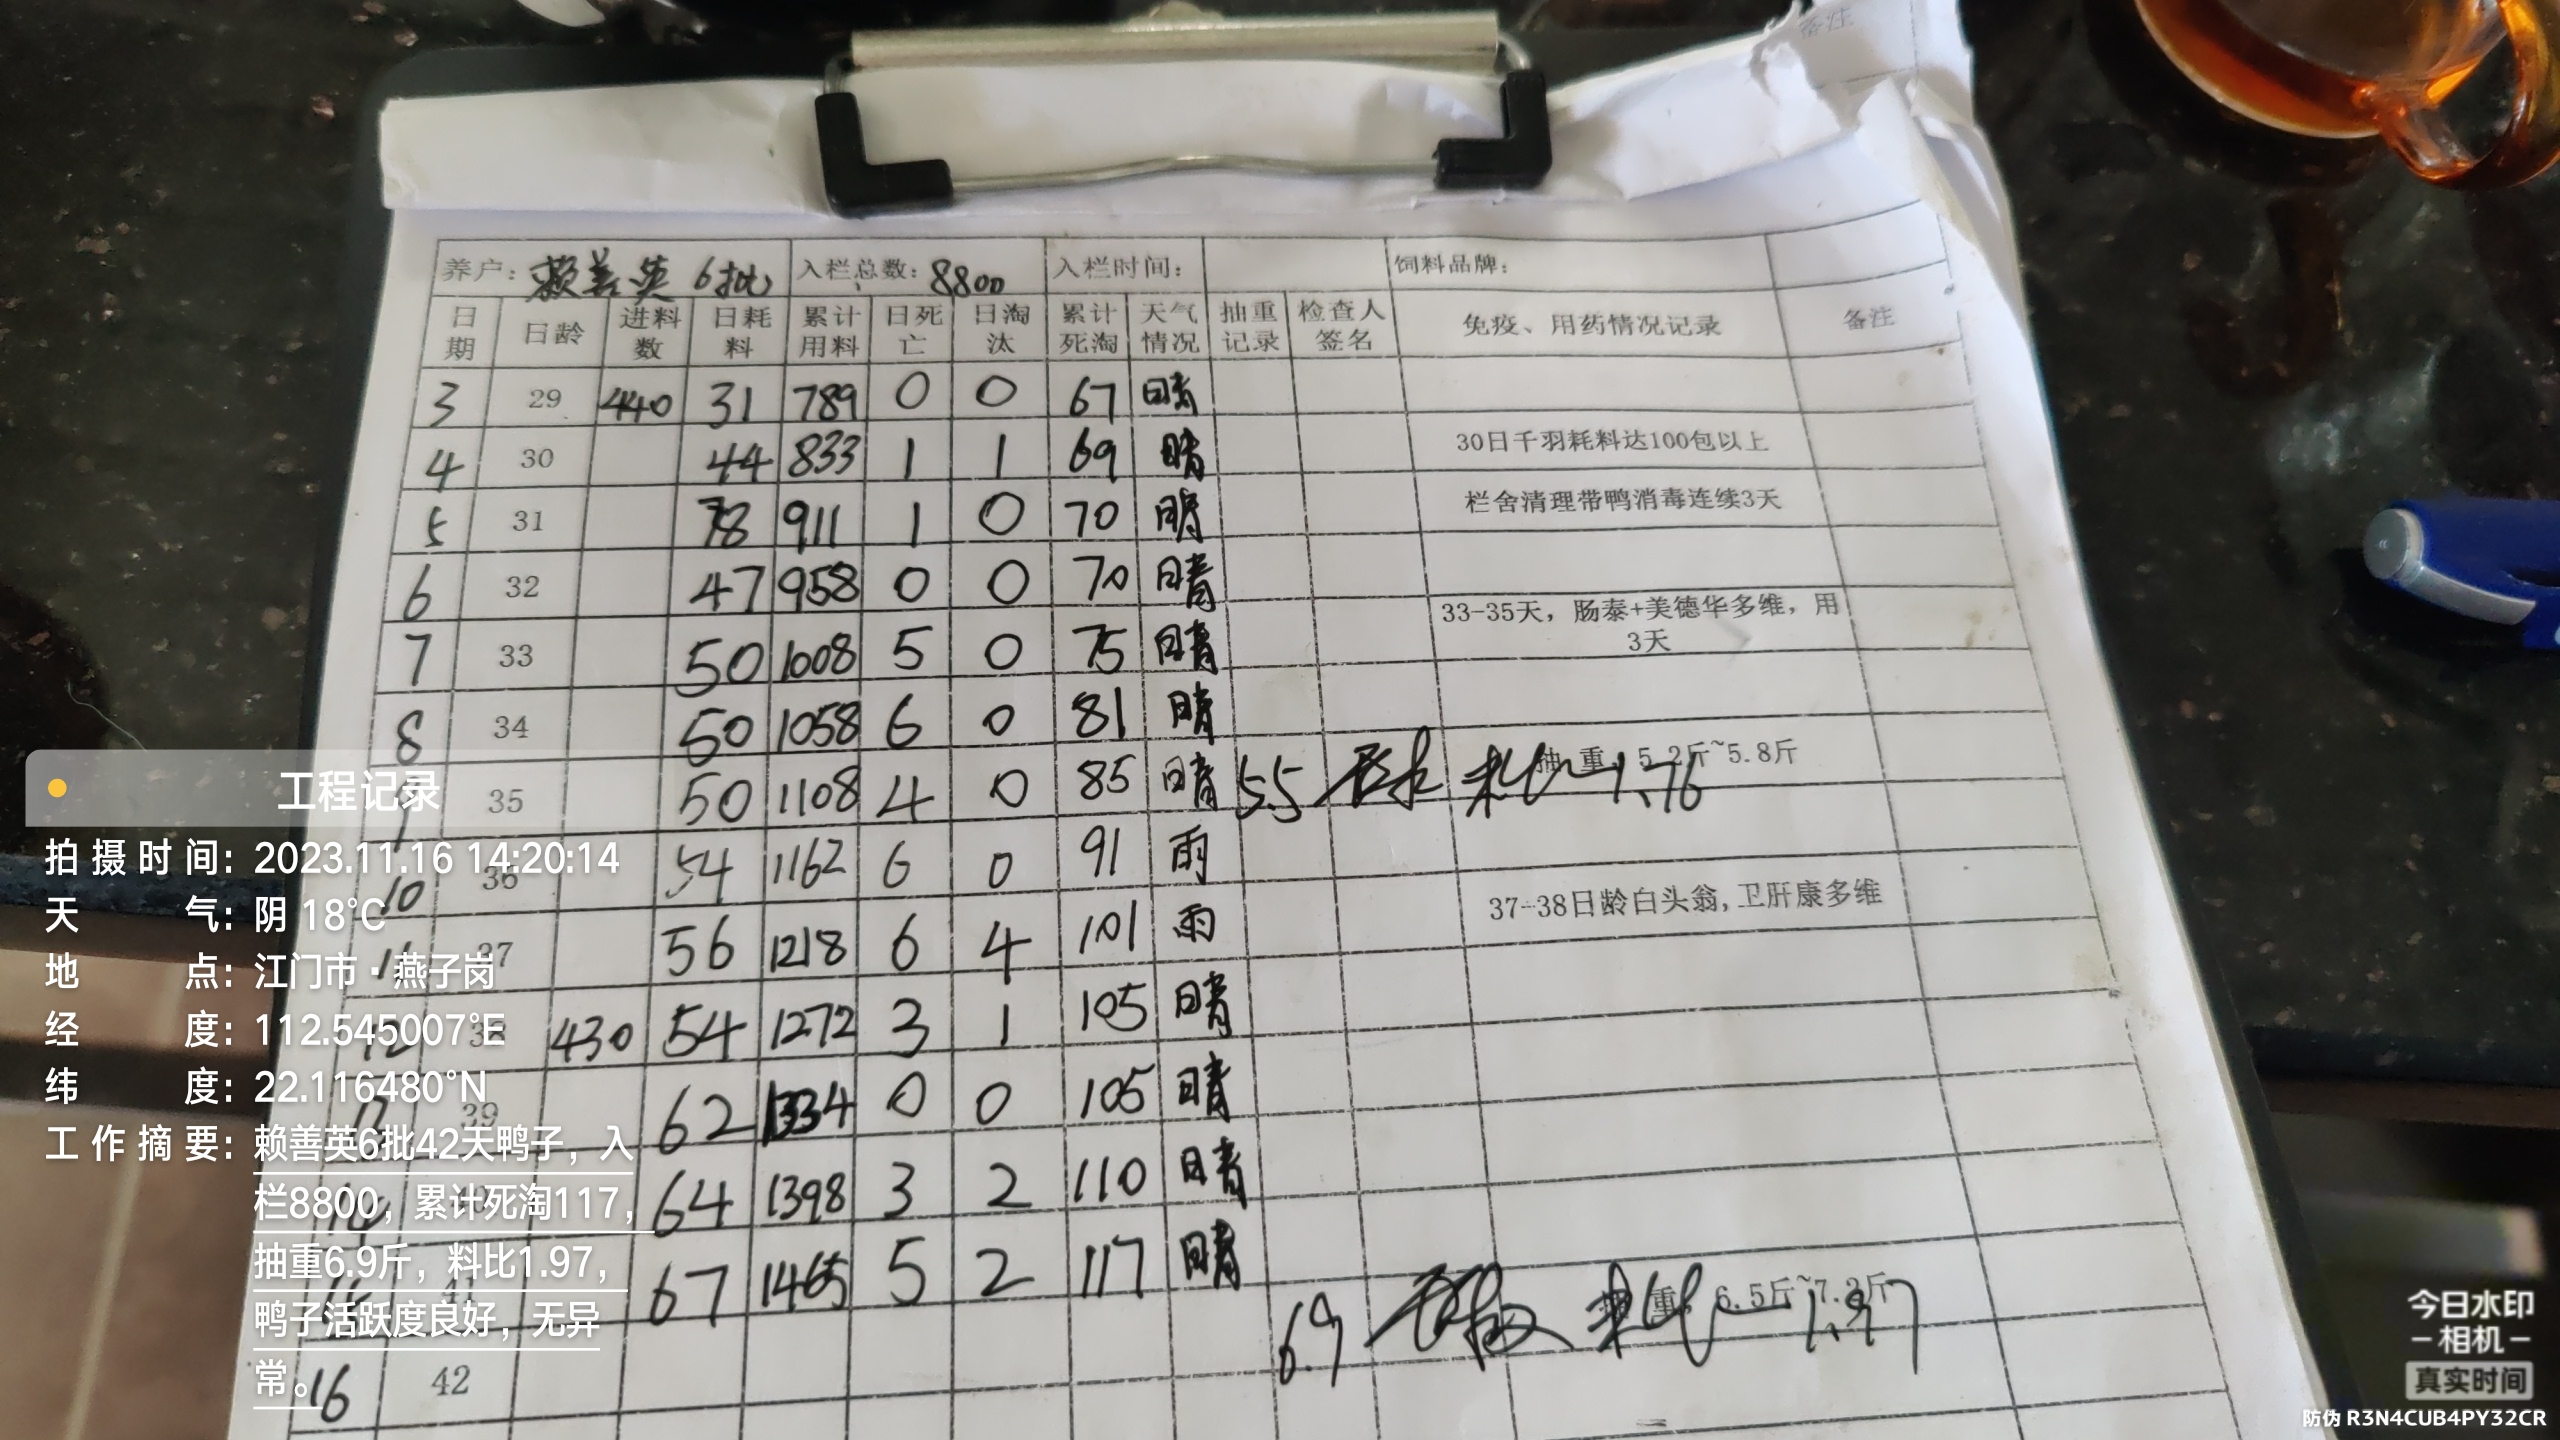 备注
养户: 赖善英 6批 入栏总数: 8800 入栏时间: 饲料品牌:
日期 日龄 进料数 日耗料 累计用料 日死亡 日淘汰 累计死淘 天气情况 抽重记录 检查人签名 免疫、用药情况记录 备注
3 29 440 31 789 0 0 67 晴
4 30 44 833 1 1 69 晴 30日千羽耗料达100包以上
5 31 78 911 1 0 70 晴 栏舍清理带鸭消毒连续3天
6 32 47 958 0 0 70 晴
7 33 50 1008 5 0 75 晴 33-35天，肠泰+美德华多维，用3天
8 34 50 1058 6 0 81 晴
9 35 50 1108 4 0 85 晴 5.5 料比 1.76 抽重 5.2斤~5.8斤
10 36 54 1162 6 0 91 雨
11 37 56 1218 6 4 101 雨 37-38日龄白头翁,卫肝康多维
12 38 430 54 1272 3 1 105 晴
13 39 62 1334 0 0 105 晴
14 40 64 1398 3 2 110 晴
15 41 67 1465 5 2 117 晴
6.9 料比 1.97 重 6.5斤~7.2斤
16 42
工程记录
拍摄时间: 2023.11.16 14:20:14
天气: 阴 18℃
地点: 江门市·燕子岗
经度: 112.545007°E
纬度: 22.116480°N
工作摘要: 赖善英6批42天鸭子，入
栏8800，累计死淘117，
抽重6.9斤，料比1.97，
鸭子活跃度良好，无异
常。
今日水印
-相机-
真实时间
防伪 R3N4CUB4PY32CR